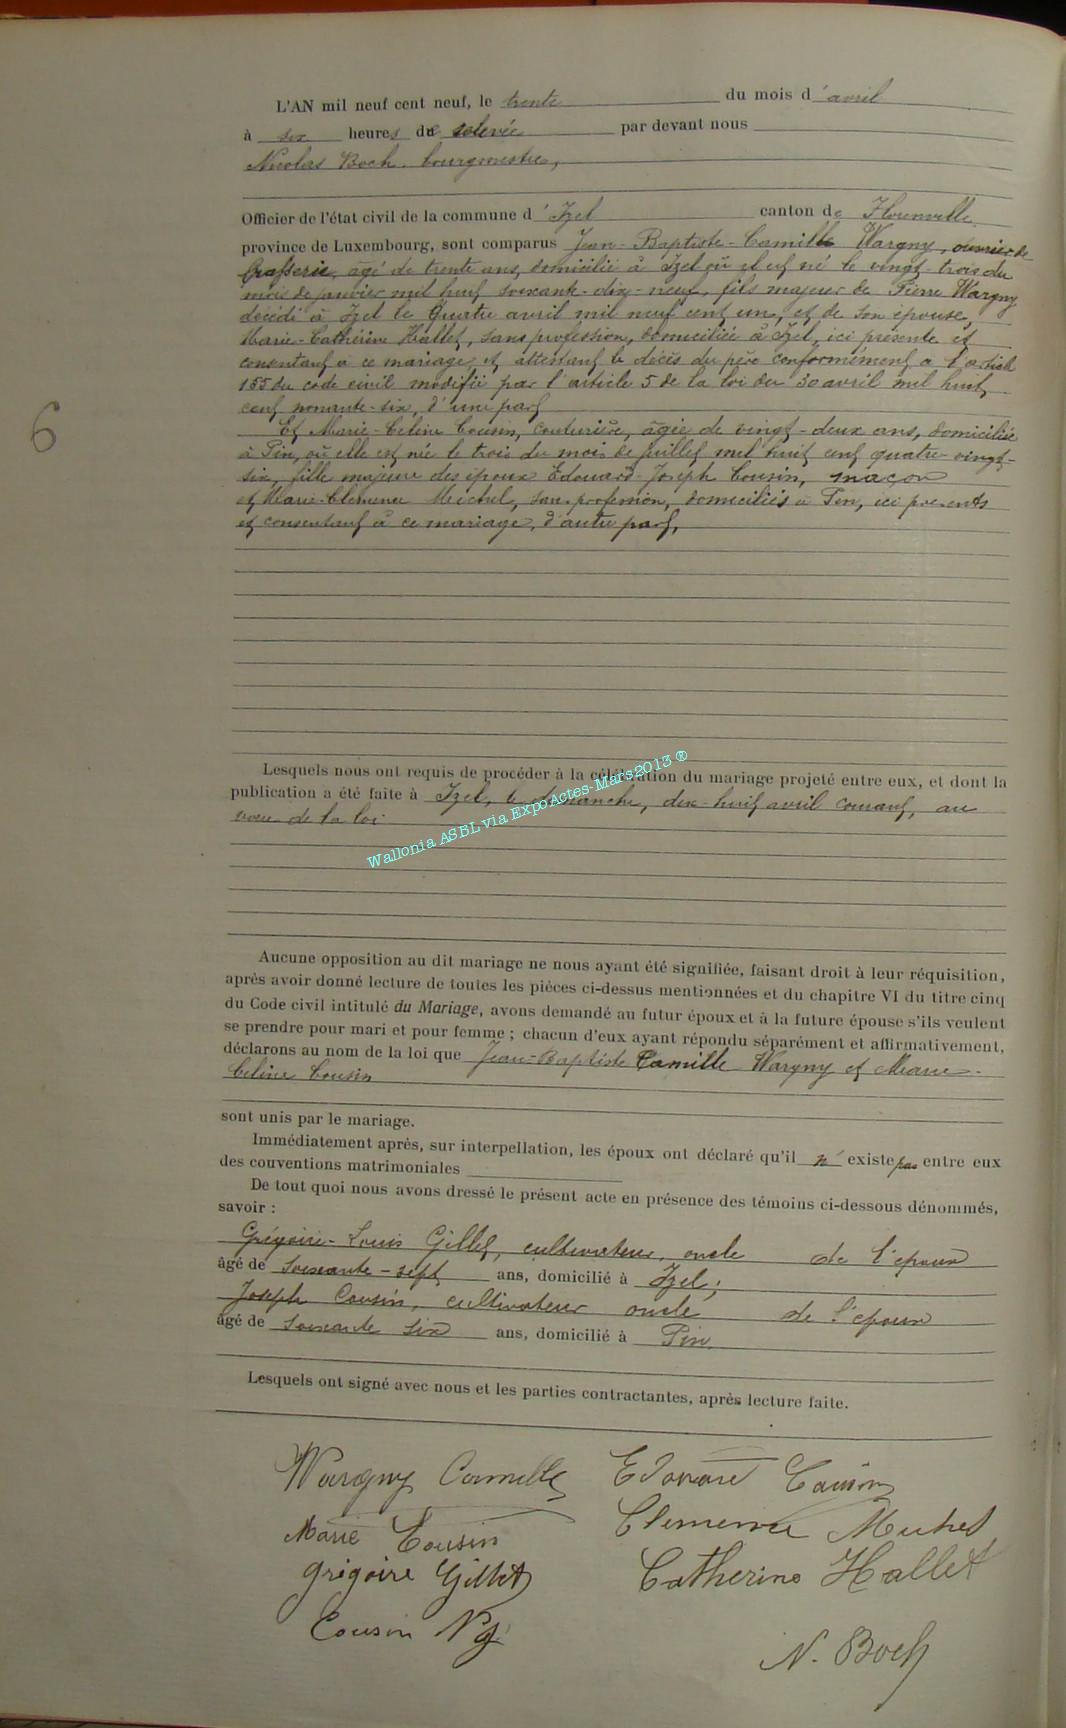 L'AN mil neuf cent neuf, le trente du mois d'avril
à six heures du relevée par devant nous
Nicolas Boch, bourgmestre,
Officier de l'état civil de la commune d'Izel canton de Florenville
province de Luxembourg, sont comparus Jean-Baptiste-Camille Wargny, ouvrier de
brasserie, âgé de trente ans, domicilié à Izel où il est né le vingt-trois du
mois de janvier mil huit soixante-dix-neuf, fils majeur de Pierre Wargny
décédé à Izel le quatre avril mil neuf cent un, et de son épouse,
Marie-Cathérine Hallet, sans profession, domiciliée à Izel, ici présente et
consentant à ce mariage et attestant le décès du père conformément à l'article
155 du code civil modifié par l'article 5 de la loi du 30 avril mil huit
cent nonante-six, d'une part
Et Marie-Celine Cousin, couturière, âgée de vingt-deux ans, domiciliée
à Pin, où elle est née le trois du mois de juillet mil huit cent quatre-vingt-
six, fille majeure des époux Edouard-Joseph Cousin, maçon
et Marie-Clémence Michel, sans profession, domiciliés à Pin, ici présents
et consentant à ce mariage, d'autre part,
6
Lesquels nous ont requis de procéder à la célébration du mariage projeté entre eux, et dont la
publication a été faite à Izel, le dimanche, dix-huit avril courant, au
vœu de la loi
Wallonia ASBL via ExpoActes-Mars2013 ®
Aucune opposition au dit mariage ne nous ayant été signifiée, faisant droit à leur réquisition,
après avoir donné lecture de toutes les pièces ci-dessus mentionnées et du chapitre VI du titre cinq
du Code civil intitulé du Mariage, avons demandé au futur époux et à la future épouse s'ils veulent
se prendre pour mari et pour femme ; chacun d'eux ayant répondu séparément et affirmativement,
déclarons au nom de la loi que Jean-Baptiste Camille Wargny et Marie-
Celine Cousin
sont unis par le mariage.
Immédiatement après, sur interpellation, les époux ont déclaré qu'il n'existe pas entre eux
des conventions matrimoniales
De tout quoi nous avons dressé le présent acte en présence des témoins ci-dessous dénommés,
savoir :
Grégoire-Louis Gillet, cultivateur, oncle de l'époux
âgé de soixante-sept ans, domicilié à Izel;
Joseph Cousin, cultivateur oncle de l'époux
âgé de soixante six ans, domicilié à Pin.
Lesquels ont signé avec nous et les parties contractantes, après lecture faite.
Wargny Camille Edouard Cousin
Marie Cousin Clemence Michel
Grégoire Gillet Catherine Hallet
Cousin
N. Boch